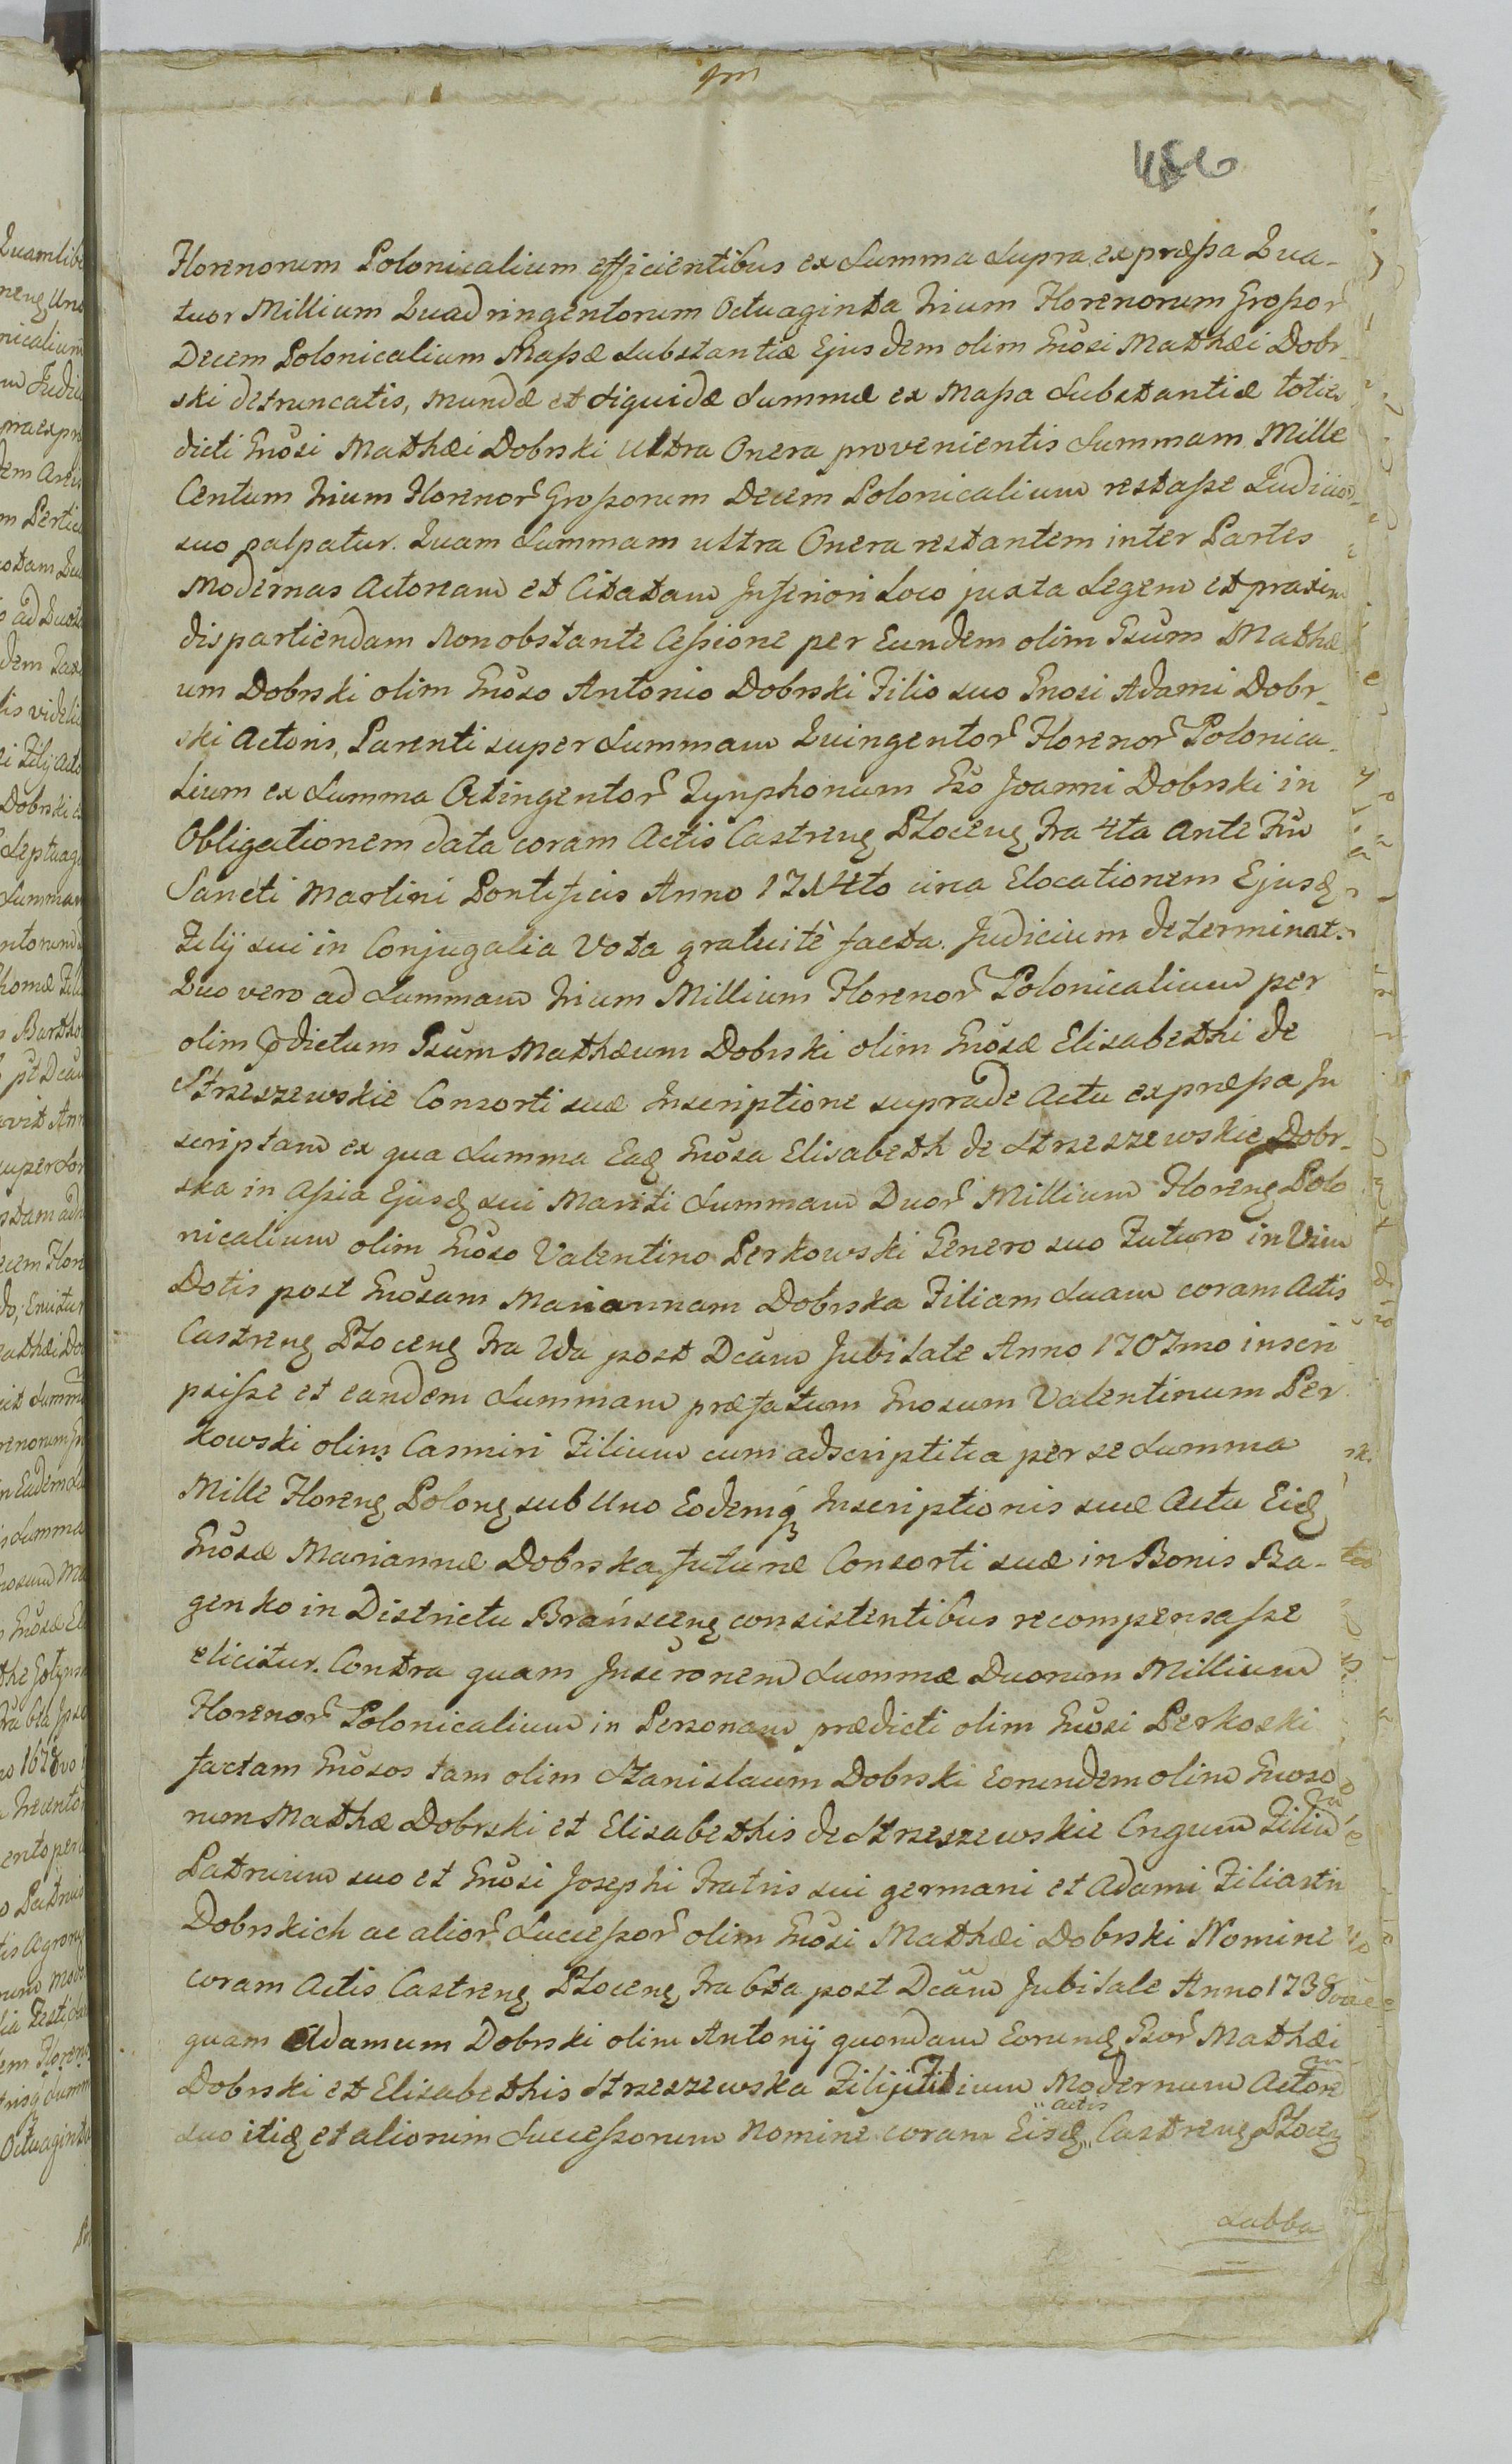 456
Florenorum Polonicalium efficientibus ex Summa Supra expræssa Qua-
tuor Millium Quadringentorum Octuaginta Trium Florenorum Grossor
Decem Polonicalium Massæ Substantiæ Ejusdem olim Gnosi Mathæi Dobr-
ski detruncatis, mundæ et liquidæ Summæ ex Massa Substantiæ toties
dicti Gnosi Mathæi Dobrski Ultra Onera provenientis Summam Mille
Centum Trium Florenor Grossorum Decem Polonicalium restasse Judicio
suo palpatur. Quam Summam ultra Onera restantem inter Partes
Modernas Actoream et Citatam Inferiori Loco juxta Legem et praxim
dispartiendam Non obstante Cessione per Eundem olim Gsum Mathæ
um Dobrski olim Gnoso Antonio Dobrski Filio suo Gnosi Adami Dobr-
ski Actoris, Parenti super Summam Quingentor Florenor Polonica-
lium ex Summa Octingentor Tynphonum Gso Joanni Dobrski in
Obligationem data coram Actis Castren Płocen Fra 4ta Ante Ftu
Sancti Martini Pontificis Anno 1714to circa Elocationem Ejusd
Filij sui in Conjugalia Vota gratuitè facta. Judicium determinat.
Quo vero ad Summam Trium Millium Florenor Polonicalium per
olim pdictum Gsum Mathæum Dobrski olim Gnosæ Elisabethi de
Strzeszewskie Consorti suæ Inscriptione supra de Actu expræssa In
scriptam ex qua Summa Ead Gnosa Elisabeth de Strzeszewskie Dobr-
ska in Assia Ejusd sui Mariti Summam Duor Millium Floren Polo
nicalium olim Gnoso Valentino Perkowski Genero suo Futuro in Vim
Dotis post Gnosam Mariannam Dobrska Filiam Suam coram Actis
Castren Płocen Fra 2da post Dcam Jubilate Anno 1707mo inscri
psisse et eandem Summam præfatum Gnosum Valentinum Per
kowski olim Casmiri Filium cum adscriptitia per se Summa
Mille Floren Polon sub Uno Eodemq Inscriptionis suæ Actu Eid
Gnosæ Mariannæ Dobrska futuræ Consorti suæ in Bonis Ba-
genko in Districtu Brańscen consistentibus recompensasse
elicitur. Contra quam Inscronem Summæ Duorum Millium
Florenor Polonicalium in Personam prædicti olim Gnosi Perkoski
factam Gnosos tam olim Stanislaum Dobrski Eorundem olim Gnoso
rum Mathæ Dobrski et Elisabethis de Strzeszewskie Cngum Filiu
Patruum suo et Gnosi Josephi Fratris sui germani et Adami Filiastri
Dobrskich ac alior Successor olim Gnosi Mathæi Dobrski Nomine
coram Actis Castren Płocen Fra 6ta post Dcam Jubilate Anno 1738vo
quam Adamum Dobrski olim Antonij quondam Eorund Gsor Mathæi
Dobrski et Elisabethis Strzeszewska Filij Filium Modernum Actore
Suo itid et aliorum Successorum Nomine coram Eisd Actis Castren Płocen
Sabba